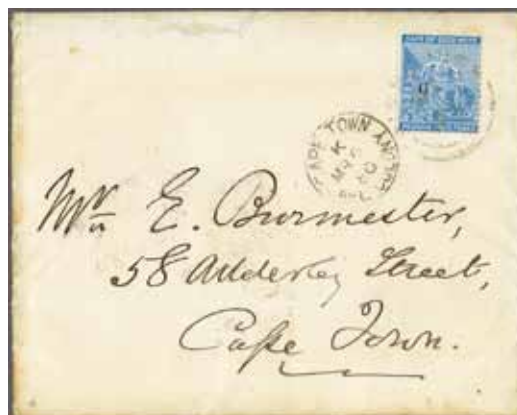 CAPE OF GOOD HOPE
CAPE TOWN
K
MR 6
80
Mr E. Burmester,
58 Adderley Street,
Cape Town.